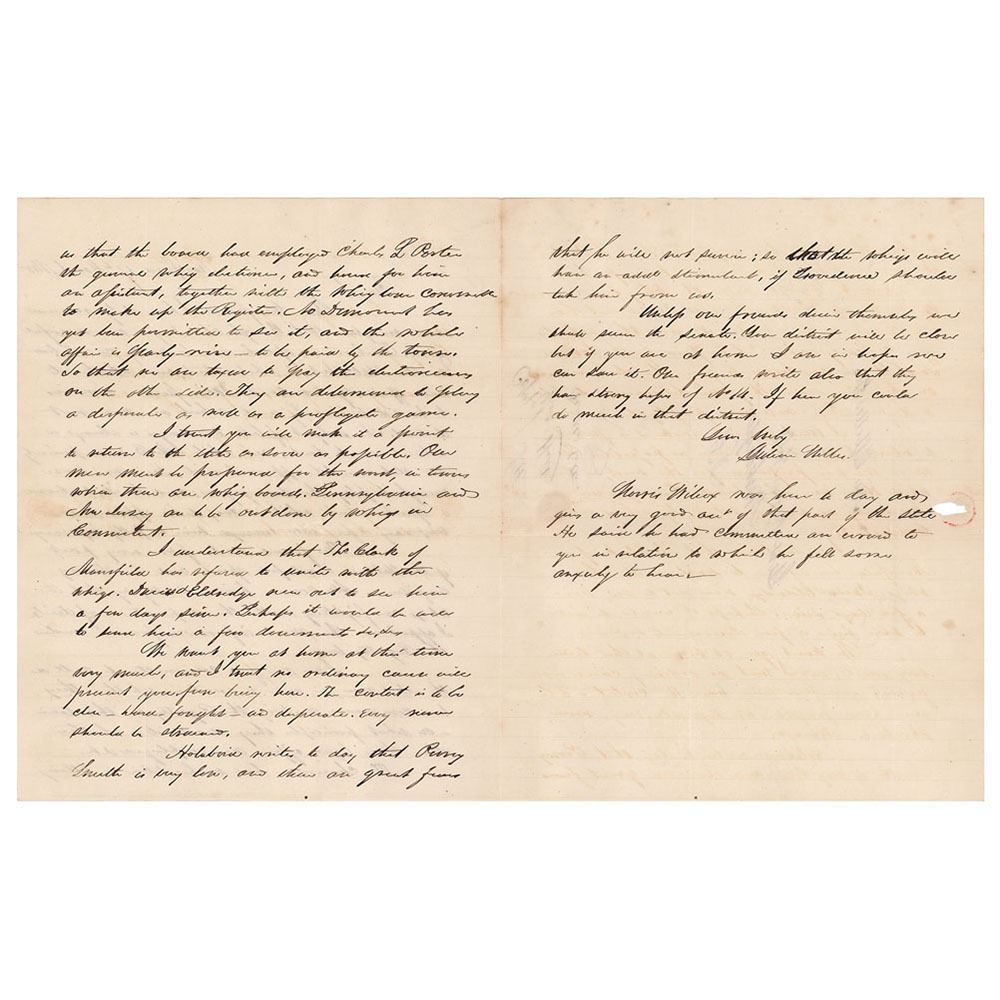 us that the board had employed Charles L Porter
the general whig electioneer, and hired for him
an assistant, together with the Whig town Committee
to make up the Register. No Democrat has
yet been permitted to see it, and the whole
affair is to be paid by the town.
So that we are taxed to pay the electioneers
on the other side. They are determined to play
a desperate as well as a profligate game.
I trust you will make it a point
to return to the state as soon as possible. Our
men must be prepared for the worst, in towns
where there are whig boards. Pennsylvania and
New Jersey are to be outdone by whigs in
Connecticut.
I understand that Tho Clark of
Mansfield has refused to unite with the
whigs. & Eldredge were out to see him
a few days since. Perhaps it would be well
to send him a few documents &c, &c
We want you at home at this time
very much, and I trust no ordinary cause will
prevent your from being here. The contest is to be
close - hard - fought - and desperate. Every nerve
should be strained.
Holabird writes to day that Perry
Smith is very low, and there are great fears
that he will not survive; so that the whigs will
have an added stimulant, if Providence should
take him from us.
Unless our friends deceive themselves we
shall secure the senate. Your district will be close
but if you are at home I am in hopes we
can save it. Our friends write also that they
have strong hopes of If here you could
do much in that district.
Yours truly
Gideon Welles.
Norris Wilcox was here to day and
gives a very good acct of that part of the state
He said he had committed an errand to
you in relation to which he felt some
anxiety to hear.